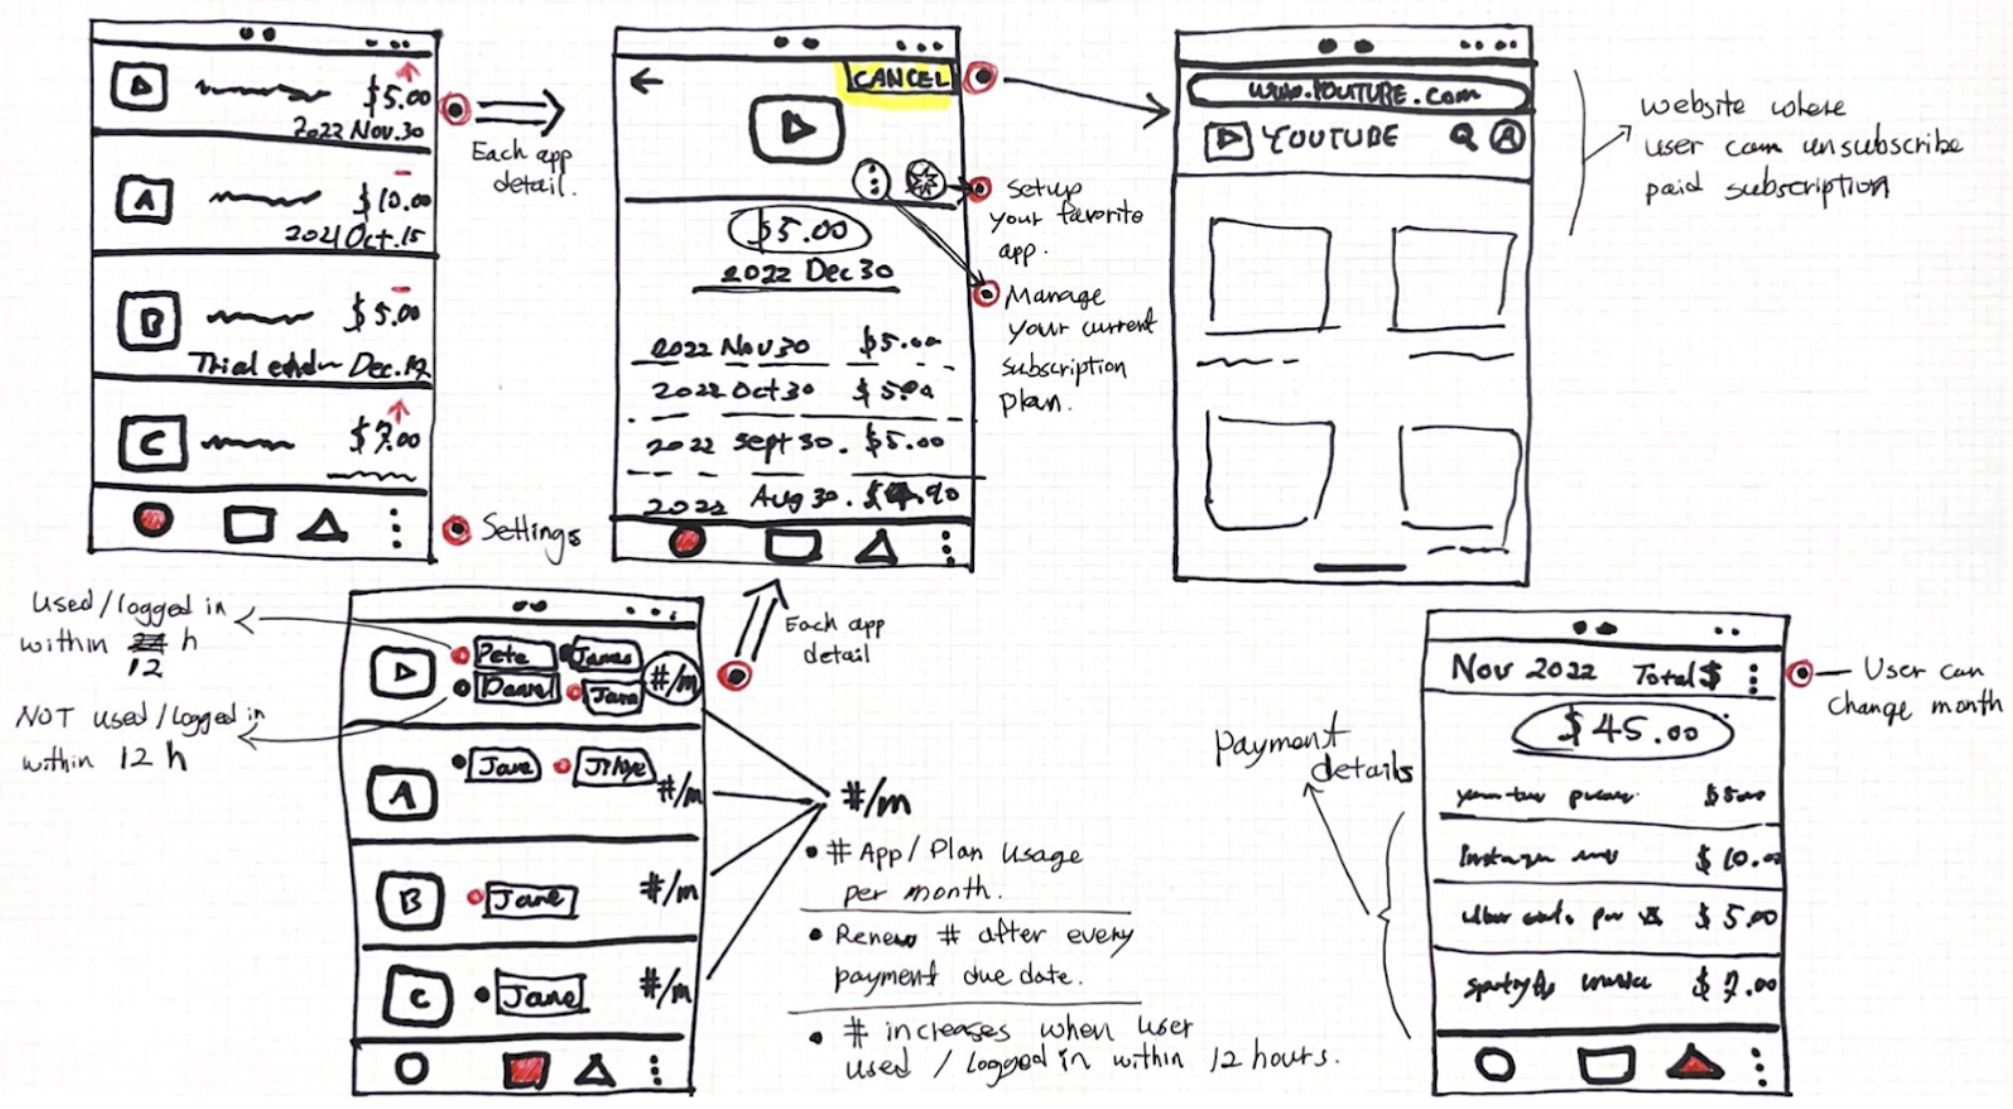 $5.00
2022 Nov.30
A
$10.00
2021 Oct.15
B
$5.00
Trial Dec.
C
$7.00
Each app
detail.
Settings
CANCEL
$5.00
2022 Dec 30
2022 Nov 30 $5.00
2022 Oct 30 $5.00
2022 Sept 30. $5.00
2022 Aug 30. .90
Setup
your favorite
app.
Manage
your current
subscription
plan.
www.YOUTUBE.com
YOUTUBE
website where
user can unsubscribe
paid subscription
Used/logged in
within 24 h
12
NOT used/logged in
within 12 h
Pete James
Daniel Jane
#/m
A
Jane
#/m
B
Jane
#/m
C
Jane
#/m
Each app
detail
#/m
• # App/Plan Usage
per month.
• Renew # after every
payment due date.
• # increases when user
used / logged in within 12 hours.
Payment
details
Nov 2022 Total $
$45.00
$5.00
$10.00
$5.00
$7.00
User can
change month